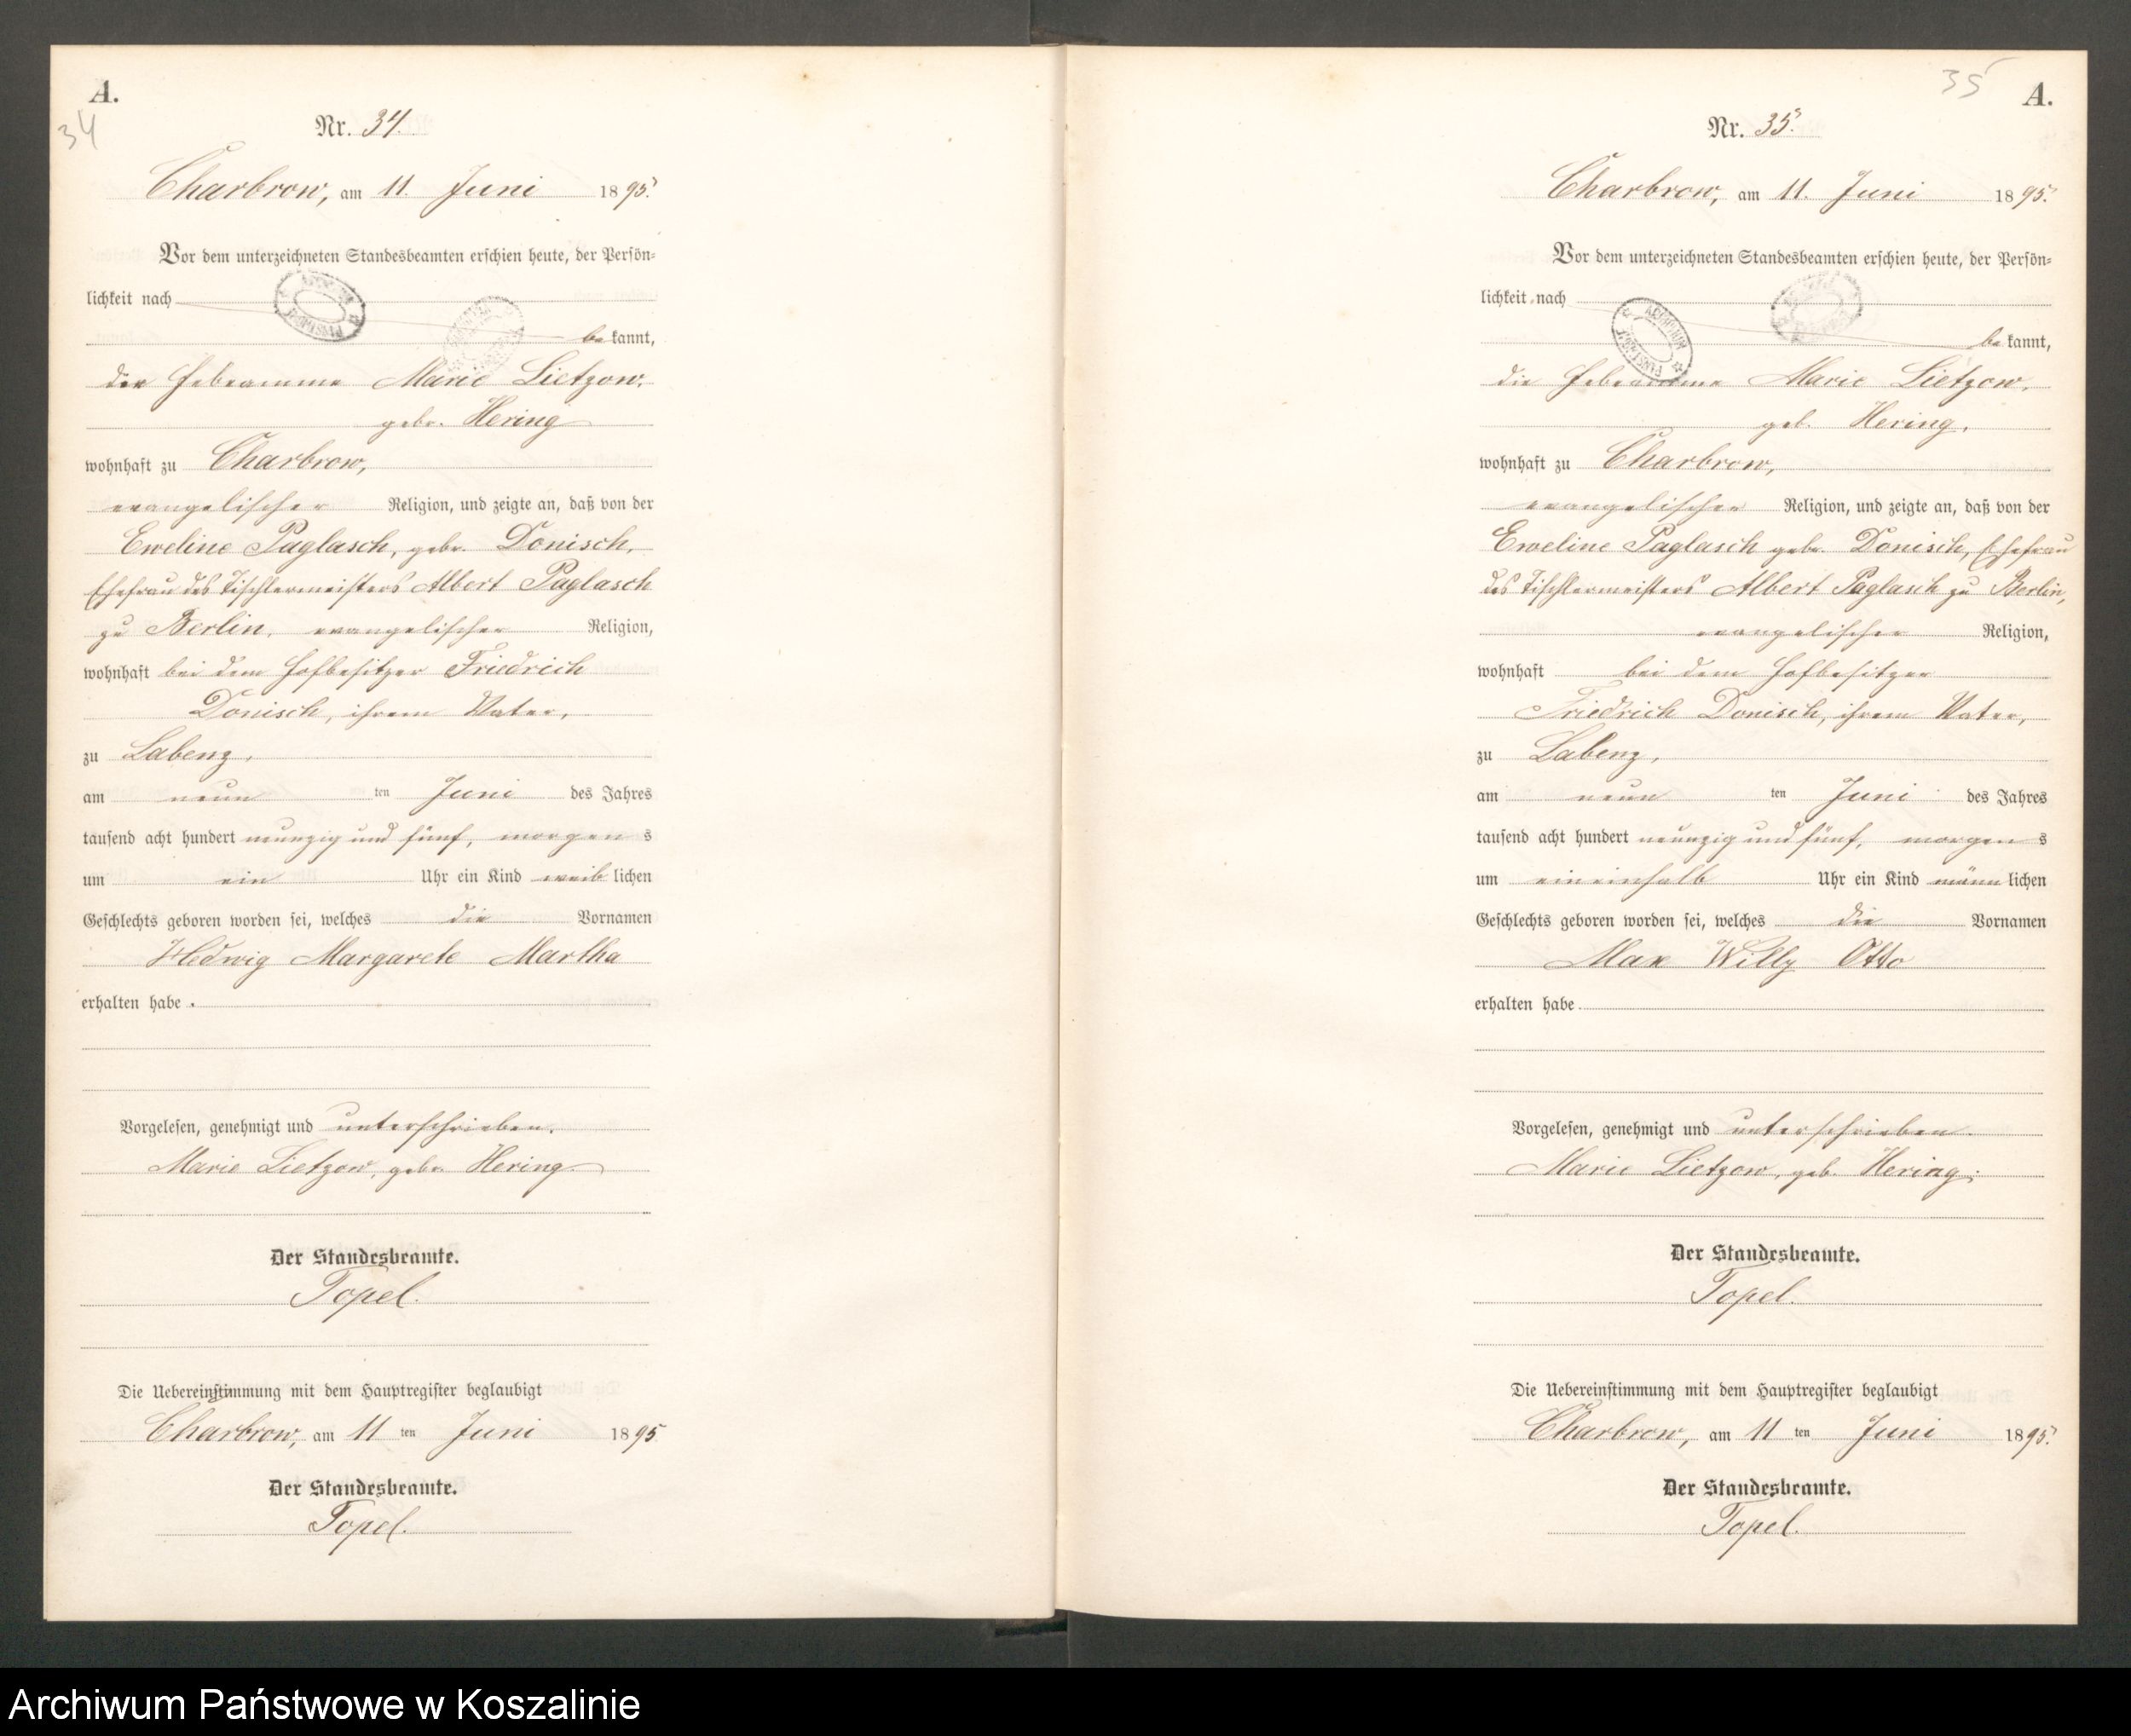 A.
34
Nr. 34.
Charbrow, am 11. Juni 1895.
Vor dem unterzeichneten Standesbeamten erschien heute, der Persön-
lichkeit nach
bekannt,
die Hebeamme Marie Lietzow,
geb. Hering
wohnhaft zu Charbrow,
evangelischer Religion, und zeigte an, daß von der
Eweline Paglasch, geb. Donisch,
Ehefrau des Tischlermeisters Albert Paglasch
zu Berlin, evangelischer Religion,
wohnhaft bei dem Hofbesitzer Friedrich
Donisch, ihrem Vater,
zu Labenz,
am neun ten Juni des Jahres
tausend acht hundert neunzig und fünf, morgens
um ein Uhr ein Kind weiblichen
Geschlechts geboren worden sei, welches die Vornamen
Hedwig Margarete Martha
erhalten habe.
Vorgelesen, genehmigt und unterschrieben.
Marie Lietzow, geb. Hering
Der Standesbeamte.
Topel.
Die Uebereinstimmung mit dem Hauptregister beglaubigt
Charbrow, am 11 ten Juni 1895
Der Standesbeamte.
Topel.
35
A.
Nr. 35.
Charbrow, am 11. Juni 1895.
Vor dem unterzeichneten Standesbeamten erschien heute, der Persön-
lichkeit nach
bekannt,
die Hebeamme Marie Lietzow,
geb. Hering,
wohnhaft zu Charbrow,
evangelischer Religion, und zeigte an, daß von der
Eweline Paglasch geb. Donisch, Ehefrau
des Tischlermeisters Albert Paglasch zu Berlin,
evangelischer Religion,
wohnhaft bei dem Hofbesitzer
Friedrich Donisch, ihrem Vater,
zu Labenz,
am neun ten Juni des Jahres
tausend acht hundert neunzig und fünf, morgens
um eineinhalb Uhr ein Kind männlichen
Geschlechts geboren worden sei, welches die Vornamen
Max Willy Otto
erhalten habe
Vorgelesen, genehmigt und unterschrieben.
Marie Lietzow, geb. Hering.
Der Standesbeamte.
Topel.
Die Uebereinstimmung mit dem Hauptregister beglaubigt
Charbrow, am 11 ten Juni 1895.
Der Standesbeamte.
Topel.
Archiwum Państwowe w Koszalinie